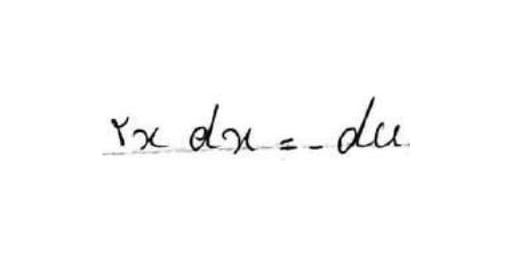 ۲x dx = - du